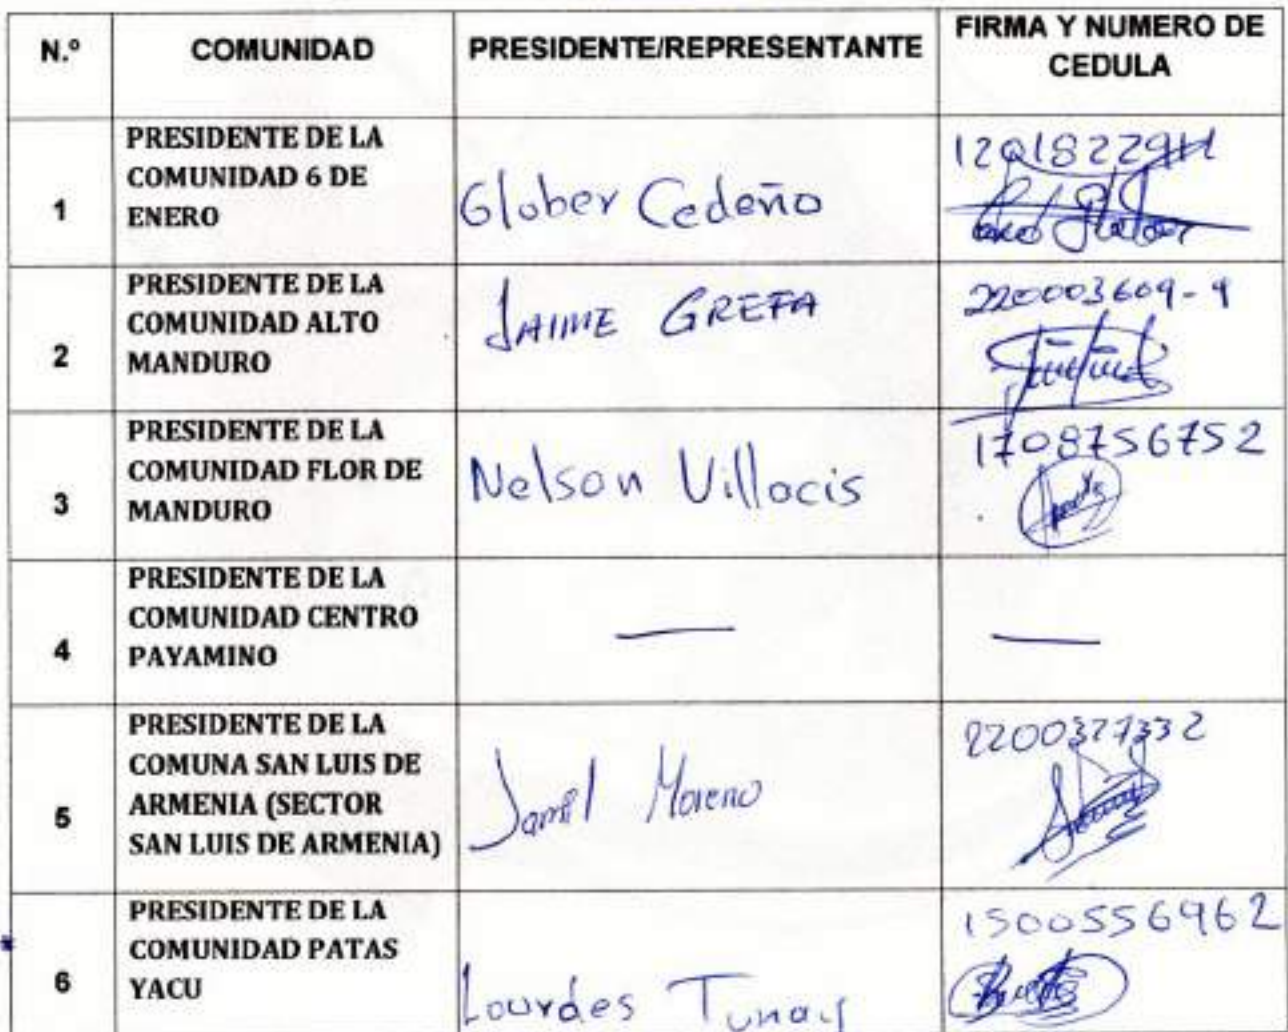 N.° COMUNIDAD PRESIDENTE/REPRESENTANTE FIRMA Y NUMERO DE CEDULA
1
PRESIDENTE DE LA
COMUNIDAD 6 DE
ENERO
Glober Cedeño
2
PRESIDENTE DE LA
COMUNIDAD ALTO
MANDURO
JAIME GREFA
220003609-9
3
PRESIDENTE DE LA
COMUNIDAD FLOR DE
MANDURO
Nelson Villacis
1708756752
4
PRESIDENTE DE LA
COMUNIDAD CENTRO
PAYAMINO
—
—
5
PRESIDENTE DE LA
COMUNA SAN LUIS DE
ARMENIA (SECTOR
SAN LUIS DE ARMENIA)
Jamil Moreno
2200327332
6
PRESIDENTE DE LA
COMUNIDAD PATAS
YACU
Lourdes Tunay
1500556962